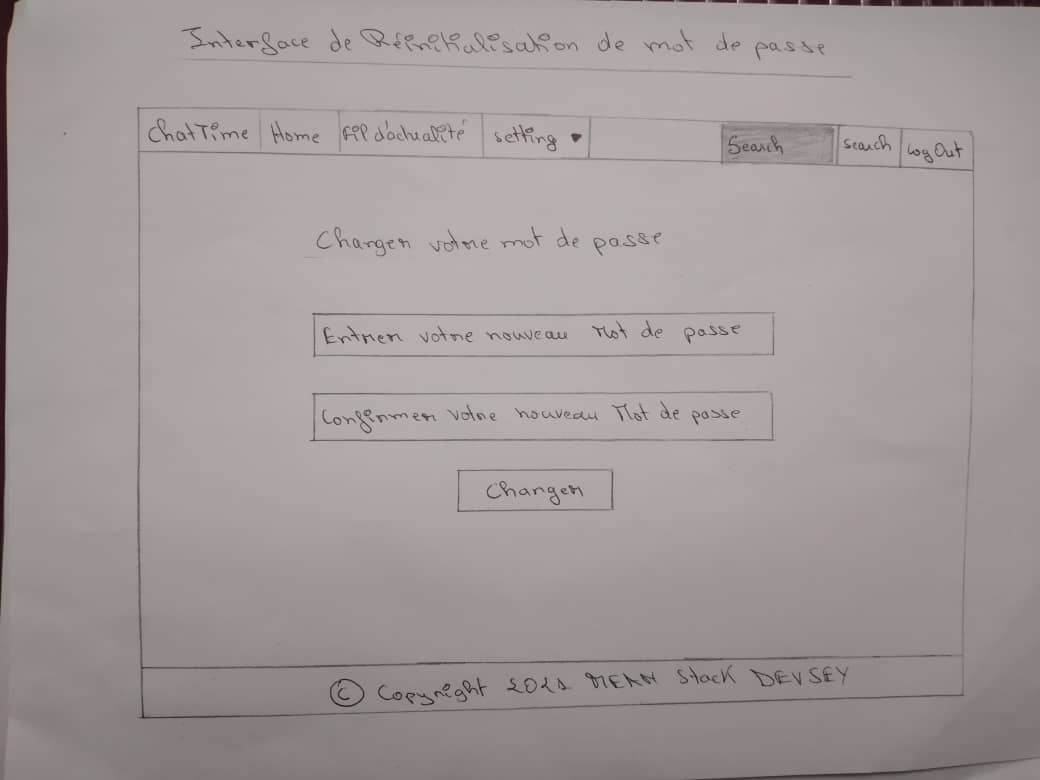 Interface de Réinitialisation de mot de passe
ChatTime Home Fil d'actualité setting Search search Log Out
Changer votre mot de passe
Entrer votre nouveau Mot de passe
Confirmer votre nouveau Mot de passe
Changer
© Copyright 2021 MEAN Stack DEVSEY